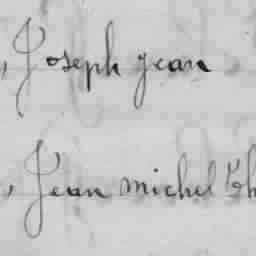 , Joseph jean
, Jean michel